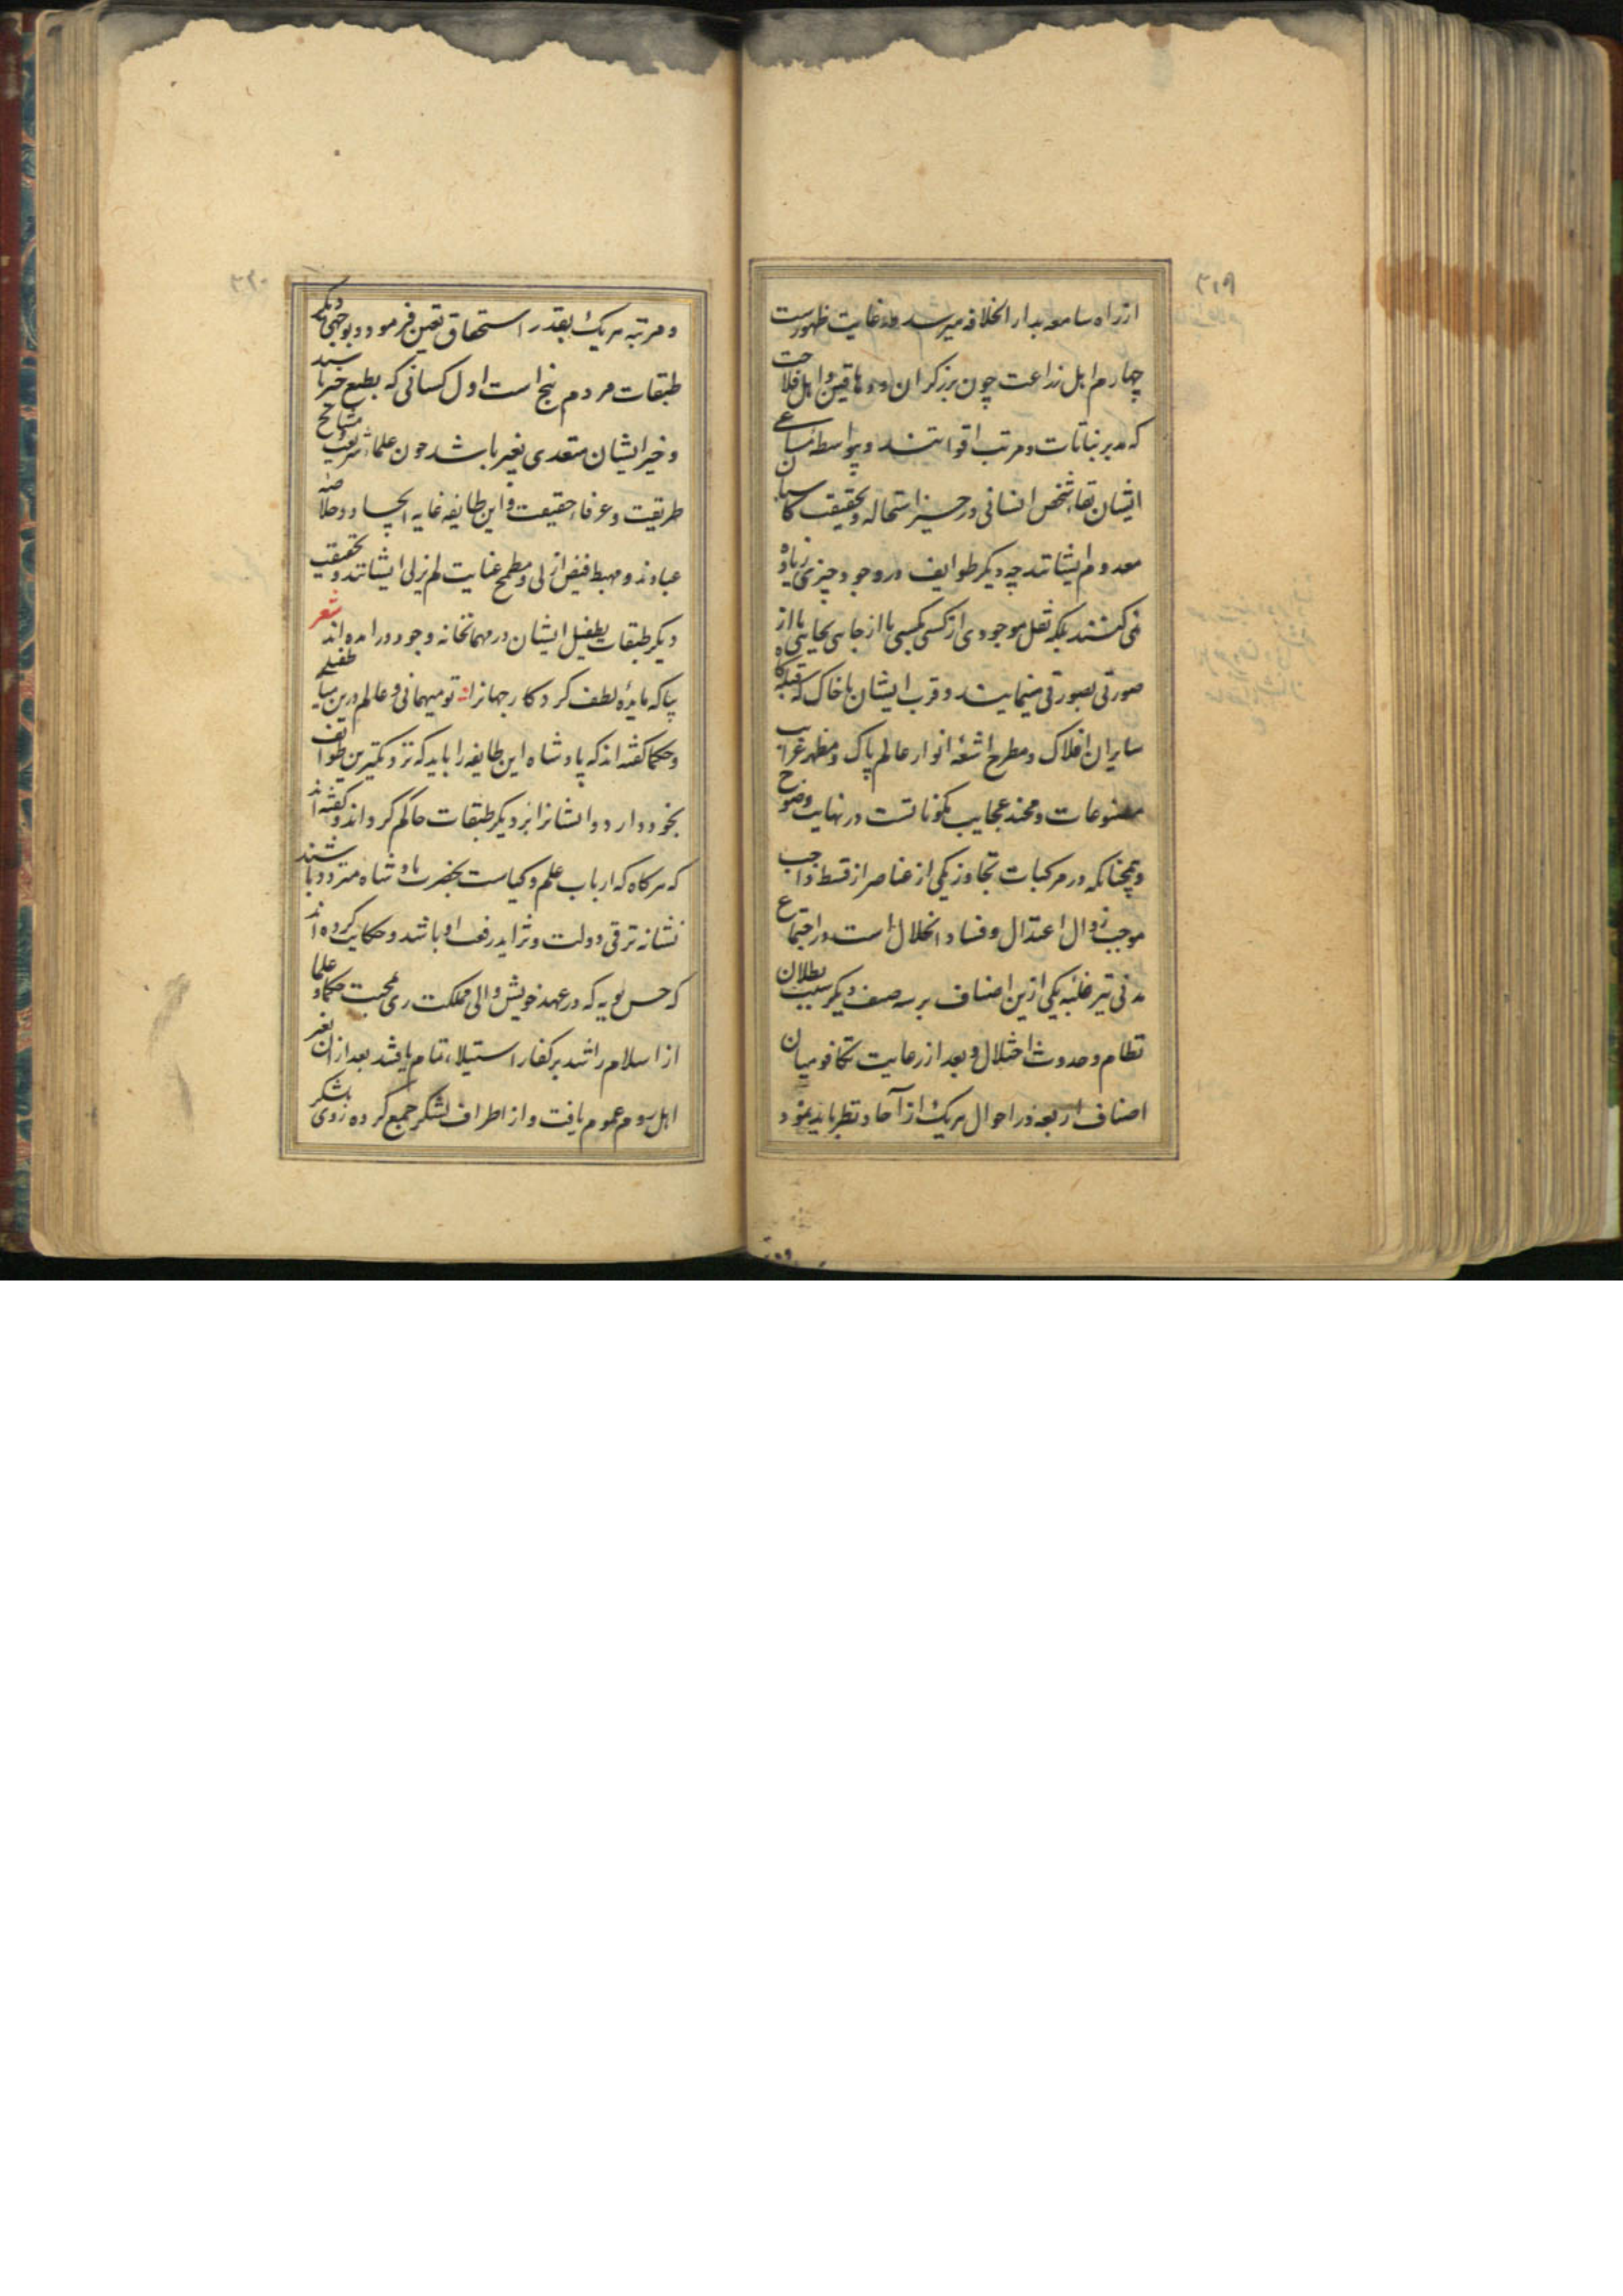 ۳۱۹
از راه سامعه بدار الخلافه میرسد در غایت ظهورست
چهارم اهل زراعت چون برزکران و دهاقین و اهل فلاحت
که مدبر نباتات و مرتب اقواتند و بواسطه مساعی
ایشان بقاء شخص انسانی در حیز استحاله و بحقیقت کاسبان
معدوم ایشانند چه دیکر طوایف در وجود چیزی زیاده
نمی کنند بلکه نقل موجودی از کسی بکسی یا از جایی بجایی یا از
صورتی بصورتی مینمایند و قرب ایشان با خاک که قبله کاه
سایران افلاک و مطرح اشعهٔ انوار عالم پاک و مظهر غرایب
مصنوعات و عجایب مکوناتست در نهایت وضوح
و همچنانکه در مرکبات تجاوز یکی از عناصر از قسط واجب
موجب زوال اعتدال و فساد و انحلال است در اجتماع
مدنی نیز غلبه یکی ازین اصناف بر سه صنف دیکر سبب بطلان
نظام و حدوث اختلال و بعد از رعایت تکافو میان
اصناف اربعه در احوال هریک از آحاد نظر باید نمود
۳۲۰
و مرتبه هریک بقدر استحقاق تعین فرمود و بوجهی دیکر
طبقات مردم پنج است اول کسانی که بطبع خیر باشند
و خیر ایشان متعدی بغیر باشد چون علماء شریعت مشایخ
طریقت و عرفاء حقیقت و این طایفه غایه ایجاد و خلاصه
عبادند و مهبط فیض ازلی و مطمح عنایت لم یزلی ایشانند و بحقیقت
دیکر طبقات بطفیل ایشان در مهمانخانه وجود در امده اند شعر
بیا که مایدهٔ لطف کردکار جهانرا تو میهمانی و عالم درین میانه طفیلی
و حکما کفته اند که پادشاه این طایفه را باید که نزدیکترین طوایف
بخود دارد و ایشانرا بر دیکر طبقات حاکم کرداند و کفته اند
که هرکاه که ارباب علم و کیاست بحضرت پادشاه متردد باشند
نشانه ترقی دولت و تزاید رفعت او باشد و حکایت کرده اند
که حسن بویه که در عهد خویش والی مملکت ری محبت حکما و علما
از اسلام را شد بر کفار استیلاء تمام یافتند بعد از ان نفیر
اهل روم عموم یافت و از اطراف لشکر جمع کرده روی بلشکر